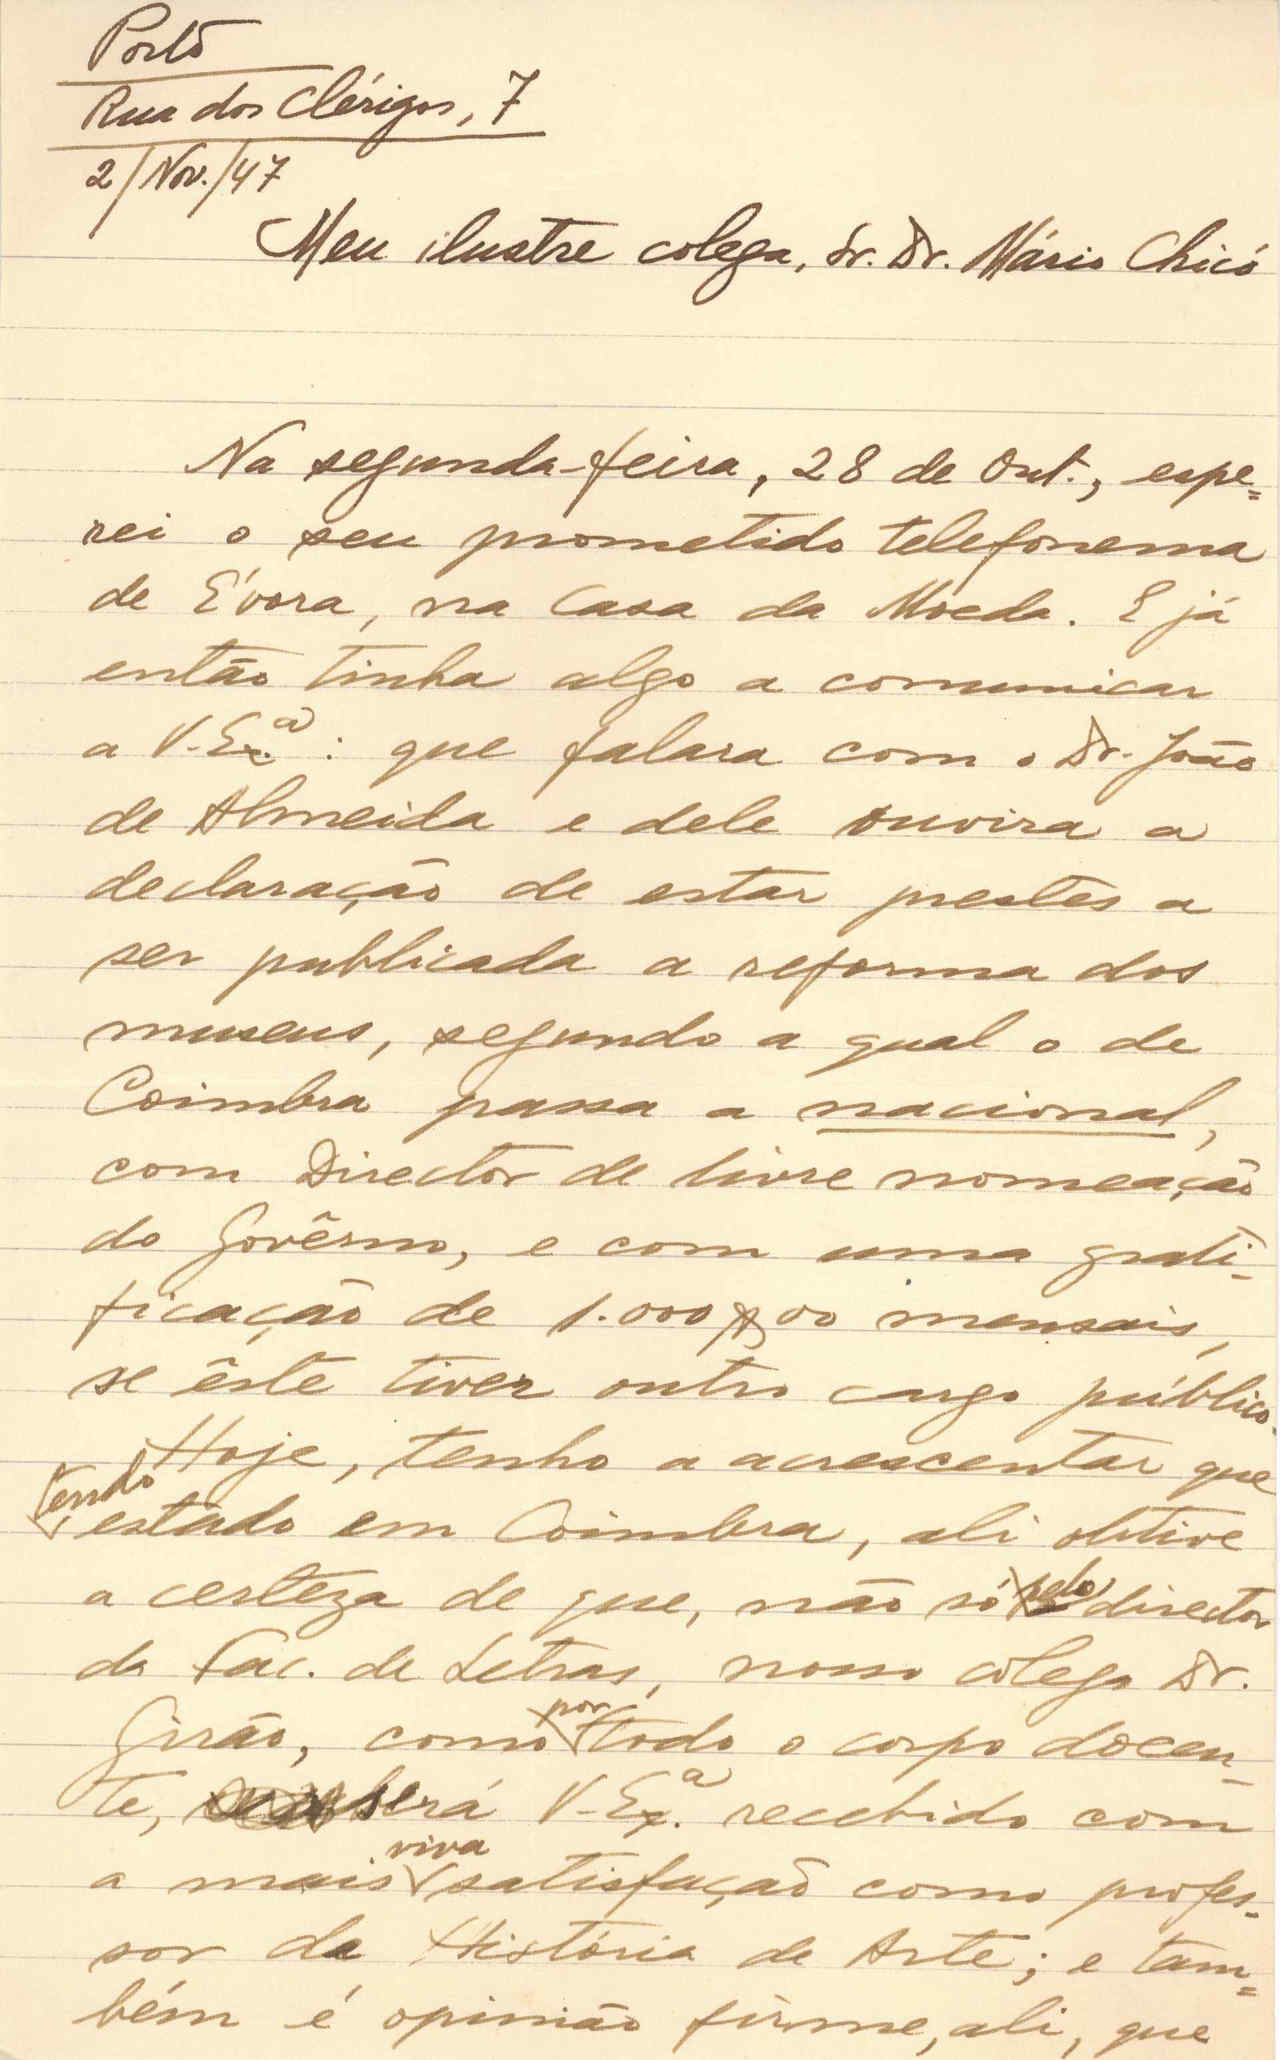 Porto
Rua dos Clérigos, 7
2/Nov./47
Meu ilustre colega, Sr. Dr. Mário Chicó
Na segunda-feira, 28 de Out., espe=
rei o seu prometido telefonema
de Évora, na Casa da Moeda. E já
então tinha algo a comunicar
a V. Ex.ª: que falara com o Dr. João
de Almeida e dele ouvira a
declaração de estar prestes a
ser publicada a reforma dos
museus, segundo a qual o de
Coimbra passa a nacional,
com Director de livre nomeação
do Govêrno, e com uma grati-
ficação de 1.000$00 mensais,
se êste tiver outro cargo público.
Hoje, tenho a acrescentar que
tendo estado em Coimbra, ali obtive
a certeza de que, não só pelo director
da Fac. de Letras, nosso colega Dr.
Girão, como por todo o corpo docen-
te, será V. Ex.ª recebido com
a mais viva satisfação como profes-
sor da História de Arte; e tam=
bém é opinião firme, ali, que